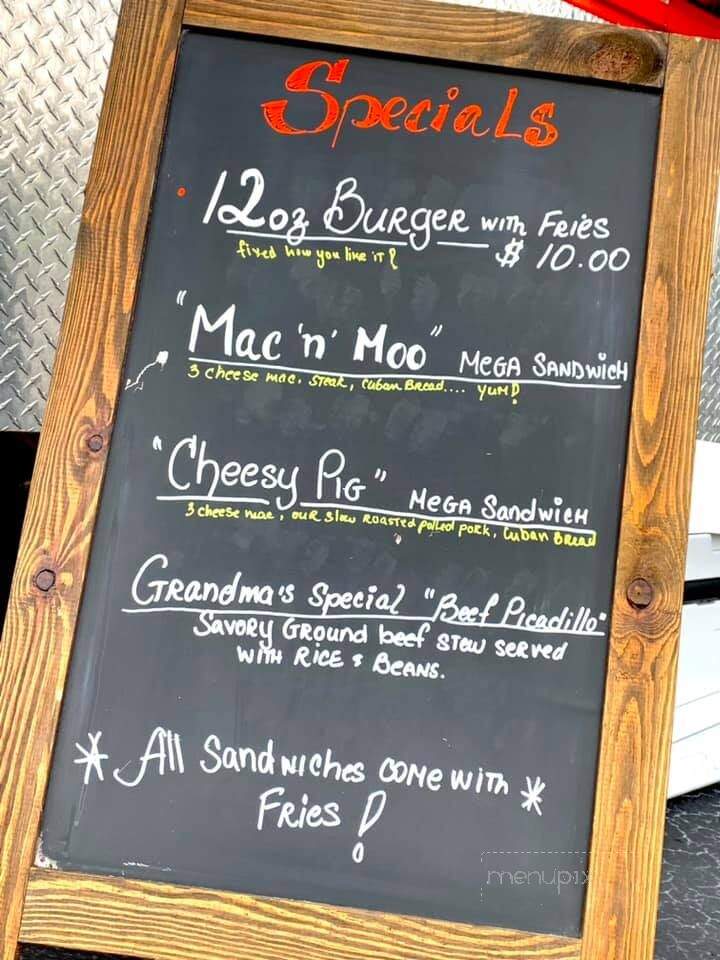 Specials
12oz Burger with Fries
$ 10.00
fixed how you like it!
"Mac 'n' Moo" Mega Sandwich
3 cheese mac, steak, Cuban Bread.... yum!
"Cheesy Pig" Mega Sandwich
3 cheese mac, our slow roasted pulled pork, Cuban Bread
Grandma's Special "Beef Picadillo"
Savory Ground beef stew served
with Rice & Beans.
* All Sandwiches come with *
Fries!
menupix